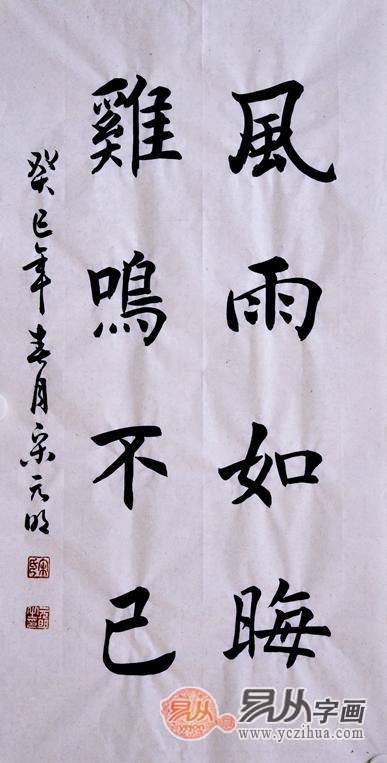 風雨如晦
雞鳴不已
癸巳年春月宋元明
易从
易从字画
www.yczihua.com